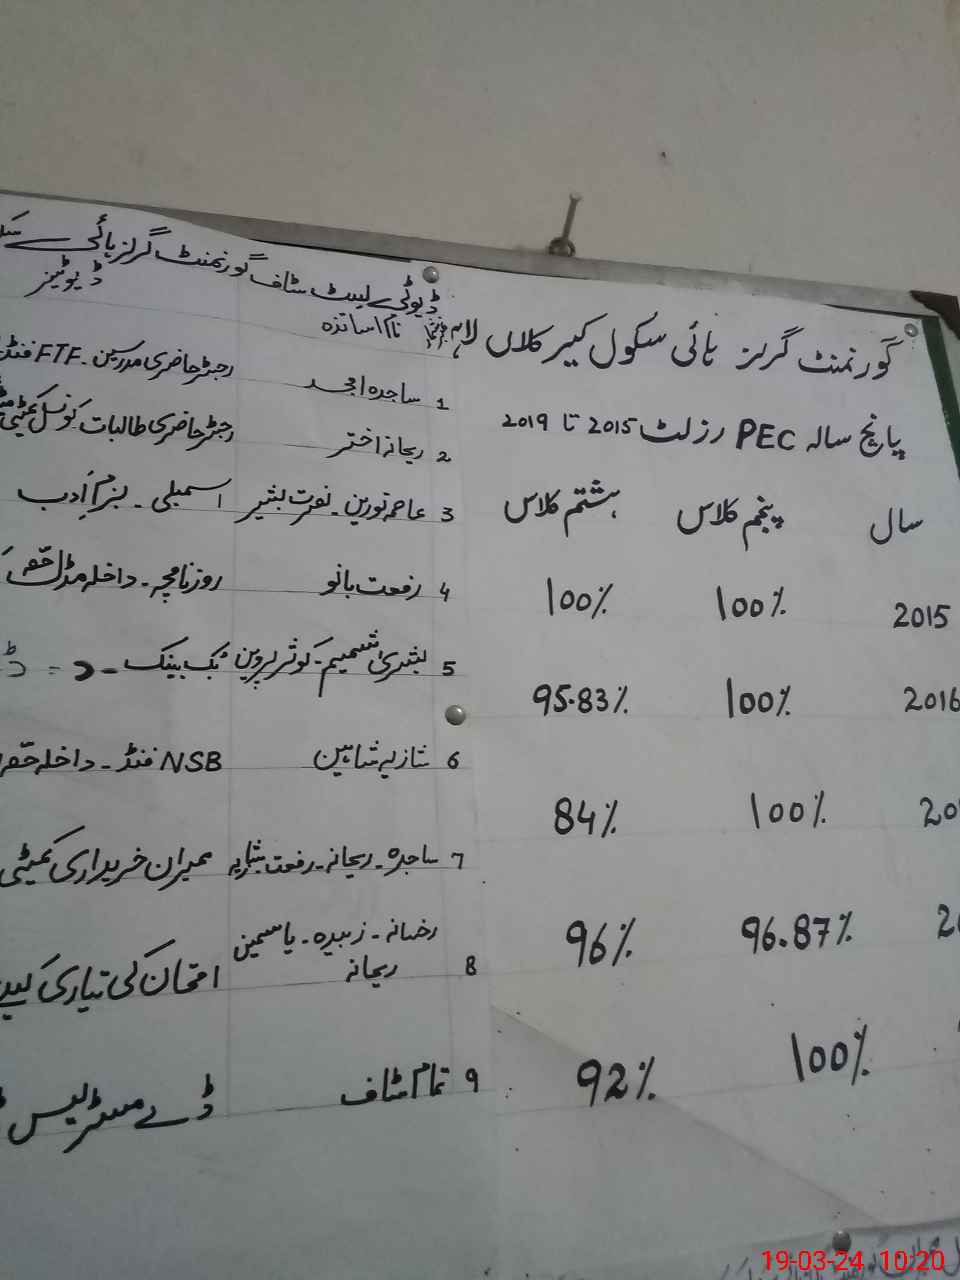 گورنمنٹ گرلز ہائی سکول کیر کلاں لاہور
پانچ سالہ PEC رزلٹ 2015 تا 2019
سال پنجم کلاس ہشتم کلاس
2015 100% 100%
2016 100% 95.83%
100% 84%
96.87% 96%
100% 92%
ڈیوٹی لسٹ سٹاف گورنمنٹ گرلز ہائی
نام اساتذہ ڈیوٹیز
1 ساجدہ امجد رجسٹر حاضری مدرسین - FTF فنڈ
2 ریحانہ اختر رجسٹر حاضری طالبات کونسل کمیٹی
3 عاصمہ نورین - نصرت بشیر اسمبلی - بزم اَدب
4 رفعت بانو روزنامچہ - داخلہ مڈل حصہ
5 بشریٰ شمیم - کوثر پروین بک بینک -
6 شازیہ شاہین NSB فنڈ - داخلہ حصہ
7 ساجدہ - ریحانہ - رفعت ممبران خریداری کمیٹی
8 رخسانہ - زبیدہ - یاسمین
ریحانہ امتحان کی تیاری کیلئے
9 تمام سٹاف ڈے مسٹریس
19-03-24 10:20